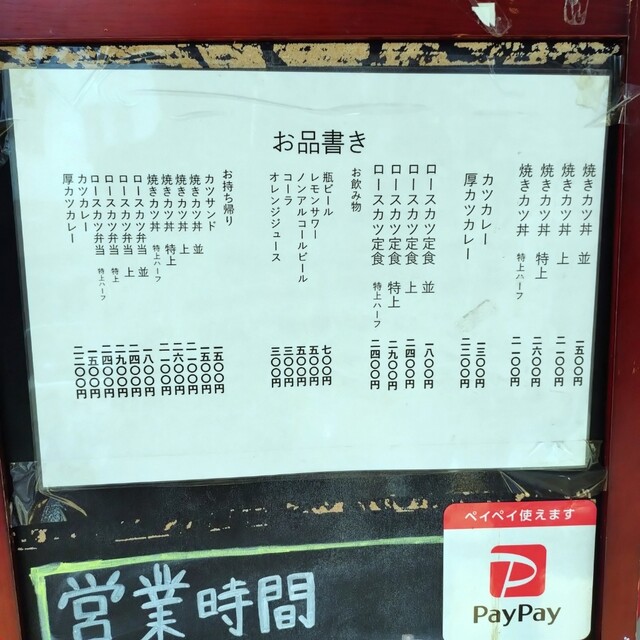 お品書き
焼きカツ丼 並 一五〇〇円
焼きカツ丼 上 二一〇〇円
焼きカツ丼 特上 二六〇〇円
焼きカツ丼 特上ハーフ 二一〇〇円
カツカレー 一三〇〇円
厚カツカレー 二二〇〇円
ロースカツ定食 並 一八〇〇円
ロースカツ定食 上 二四〇〇円
ロースカツ定食 特上 二九〇〇円
ロースカツ定食 特上ハーフ 二四〇〇円
お飲み物
瓶ビール 七〇〇円
レモンサワー 五〇〇円
ノンアルコールビール 五〇〇円
コーラ 三〇〇円
オレンジジュース 三〇〇円
お持ち帰り
カツサンド 一五〇〇円
焼きカツ丼 並 一五〇〇円
焼きカツ丼 上 二一〇〇円
焼きカツ丼 特上 二六〇〇円
焼きカツ丼 特上ハーフ 二一〇〇円
ロースカツ弁当 並 一八〇〇円
ロースカツ弁当 上 二四〇〇円
ロースカツ弁当 特上 二九〇〇円
ロースカツ弁当 特上ハーフ 二四〇〇円
カツカレー 一五〇〇円
厚カツカレー 二二〇〇円
営業時間
ペイペイ使えます
PayPay